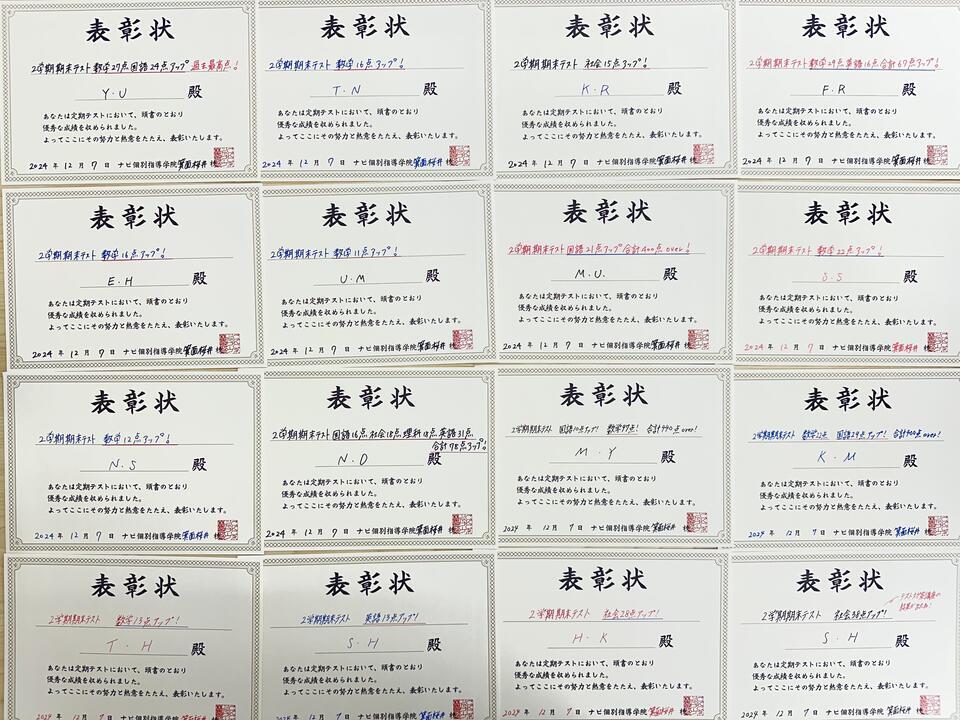 表彰状
2学期期末テスト 数学27点国語24点アップ 過去最高点!
Y.U 殿
あなたは定期テストにおいて、頭書のとおり
優秀な成績を収められました。
よってここにその努力と熱意をたたえ、表彰いたします。
2024 年 12 月 7 日 ナビ個別指導学院 箕面桜井 校
表彰状
2学期期末テスト 数学16点アップ!
T.N 殿
あなたは定期テストにおいて、頭書のとおり
優秀な成績を収められました。
よってここにその努力と熱意をたたえ、表彰いたします。
2024 年 12 月 7 日 ナビ個別指導学院 箕面桜井 校
表彰状
2学期期末テスト 社会15点アップ!
K.R 殿
あなたは定期テストにおいて、頭書のとおり
優秀な成績を収められました。
よってここにその努力と熱意をたたえ、表彰いたします。
2024 年 12 月 7 日 ナビ個別指導学院 箕面桜井 校
表彰状
2学期期末テスト 数学29点英語16点合計67点アップ!
F.R 殿
あなたは定期テストにおいて、頭書のとおり
優秀な成績を収められました。
よってここにその努力と熱意をたたえ、表彰いたします。
2024 年 12 月 7 日 ナビ個別指導学院 箕面桜井 校
表彰状
2学期期末テスト 数学16点アップ!
E.H 殿
あなたは定期テストにおいて、頭書のとおり
優秀な成績を収められました。
よってここにその努力と熱意をたたえ、表彰いたします。
2024 年 12 月 7 日 ナビ個別指導学院 箕面桜井 校
表彰状
2学期期末テスト 数学11点アップ!
U.M 殿
あなたは定期テストにおいて、頭書のとおり
優秀な成績を収められました。
よってここにその努力と熱意をたたえ、表彰いたします。
2024 年 12 月 7 日 ナビ個別指導学院 箕面桜井 校
表彰状
2学期期末テスト 国語21点アップ 合計400点over!
M.U. 殿
あなたは定期テストにおいて、頭書のとおり
優秀な成績を収められました。
よってここにその努力と熱意をたたえ、表彰いたします。
2024 年 12 月 7 日 ナビ個別指導学院 箕面桜井 校
表彰状
2学期期末テスト 数学22点アップ!
S.S 殿
あなたは定期テストにおいて、頭書のとおり
優秀な成績を収められました。
よってここにその努力と熱意をたたえ、表彰いたします。
2024 年 12 月 7 日 ナビ個別指導学院 箕面桜井 校
表彰状
2学期期末テスト 数学12点アップ!
N.S 殿
あなたは定期テストにおいて、頭書のとおり
優秀な成績を収められました。
よってここにその努力と熱意をたたえ、表彰いたします。
2024 年 12 月 7 日 ナビ個別指導学院 箕面桜井 校
表彰状
2学期期末テスト 国語16点 社会18点 理科18点 英語31点
合計78点アップ!
N.D 殿
あなたは定期テストにおいて、頭書のとおり
優秀な成績を収められました。
よってここにその努力と熱意をたたえ、表彰いたします。
2024 年 12 月 7 日 ナビ個別指導学院 箕面桜井 校
表彰状
2学期期末テスト 国語10点アップ! 数学97点! 合計440点over!
M.Y 殿
あなたは定期テストにおいて、頭書のとおり
優秀な成績を収められました。
よってここにその努力と熱意をたたえ、表彰いたします。
2024 年 12 月 7 日 ナビ個別指導学院 箕面桜井 校
表彰状
2学期期末テスト 数学22点 国語29点アップ! 合計400点over!
K.M 殿
あなたは定期テストにおいて、頭書のとおり
優秀な成績を収められました。
よってここにその努力と熱意をたたえ、表彰いたします。
2024 年 12 月 7 日 ナビ個別指導学院 箕面桜井 校
表彰状
2学期期末テスト 数学13点アップ!
T.H 殿
あなたは定期テストにおいて、頭書のとおり
優秀な成績を収められました。
よってここにその努力と熱意をたたえ、表彰いたします。
2024 年 12 月 7 日 ナビ個別指導学院 箕面桜井 校
表彰状
2学期期末テスト 英語13点アップ!
S.H 殿
あなたは定期テストにおいて、頭書のとおり
優秀な成績を収められました。
よってここにその努力と熱意をたたえ、表彰いたします。
2024 年 12 月 7 日 ナビ個別指導学院 箕面桜井 校
表彰状
2学期期末テスト 社会28点アップ!
H.K 殿
あなたは定期テストにおいて、頭書のとおり
優秀な成績を収められました。
よってここにその努力と熱意をたたえ、表彰いたします。
2024 年 12 月 7 日 ナビ個別指導学院 箕面桜井 校
表彰状
2学期期末テスト 社会38点アップ!
S.H 殿
あなたは定期テストにおいて、頭書のとおり
優秀な成績を収められました。
よってここにその努力と熱意をたたえ、表彰いたします。
2024 年 12 月 7 日 ナビ個別指導学院 箕面桜井 校